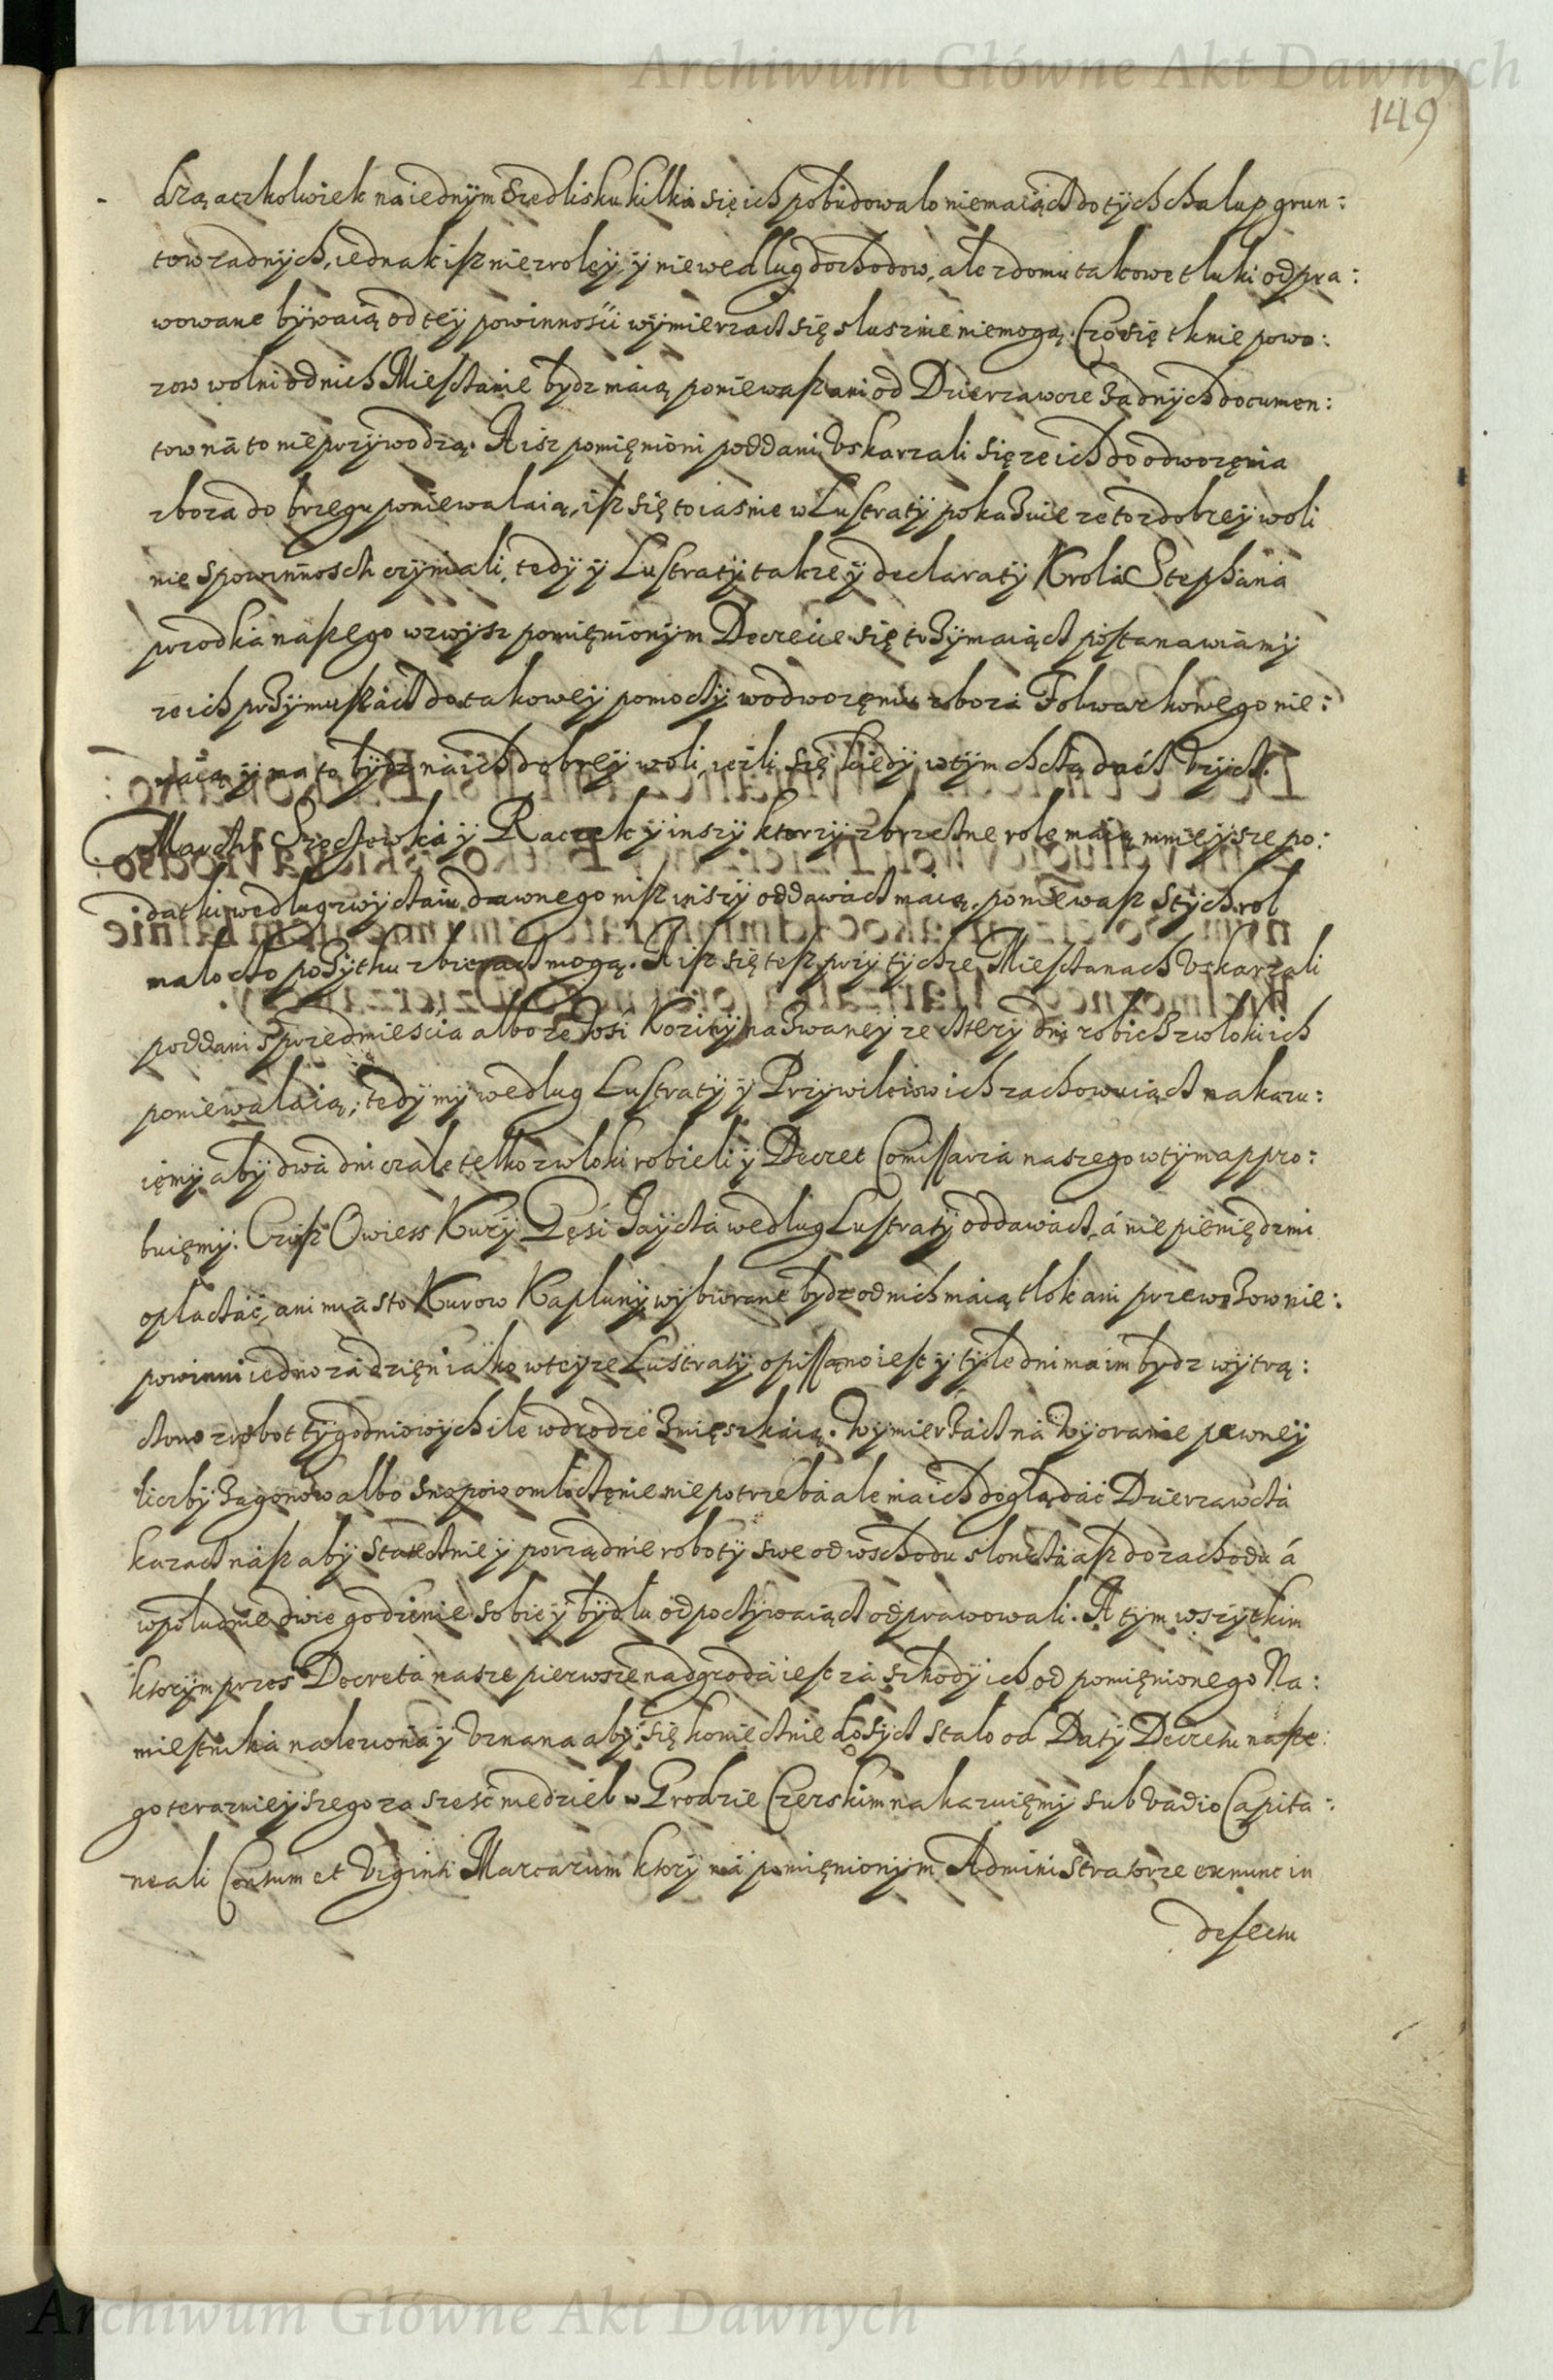 Archiwum Główne Akt Dawnych
149
dzą aczkolwiek na iednym Siedlisku kilka się ich pobudowało nie maiąch do tych chalup grun:
tow zadnych, iednak isz nie z roley, y nie wedlug dochodow, ale z domu takowe tluki odpra:
wowane bywaią od tey powinności wymierzać się słusznie nie mogą. Czo się tknie powo:
zow wolni od nich Miesczanie bydz maią, poniewasz ani od Dzierzawce żadnych documen:
tow na to nie przywodzą. A isz pomięnioni poddani Uskarzali się ze ich do odwozęnia
zboza do brzegu poniewalaią, isz się to iasnie w Lustraty pokazuie ze to z dobrey woli
nie s powinnosci czyniali, tedy y Lustraty takze y declaraty Krola Stephana
przodka naszego wzwysz pomięnionym Decrecie się trzymaiąc postanawiamy
ze ich przymuszać do takowey pomocy w odwozęniu zboza Folwarkowego nie:
maią y ma to bydz na ich dobrey woli, ieżli się kiedy w tym chcą dać użyć.
y Raczek y inszy ktorzy zbrzeżne role maią mnieysze po:
datki wedlug zwyczaiu dawnego nisz inszy oddawać maią, poniewasz s tych rol
malo co pożytku zbierać mogą. A isz się tesz przy tychze Miesczanach Uskarzali
poddani s przedmieścia albo ze Wsi Koziny nazwaney ze cztery dni robić z wloki ich
poniewalaią, tedy my wedlug Lustraty y Przywileiow ich zachowuiąc nakazu:
ięmy aby dwa dni czale telko z wloki robieli y Decret Comissarza naszego w tym appro:
buięmy. Czisz Owiess Kury Gęsi Jayca wedlug Lustraty oddawać, á nie pieniędzmi
oplacać, ani miasto Kurow Kapluny wybierane bydz od nich maią, tlok ani przewozow nie:
powinni iedno za dzięn iako w teyze Lustraty opissano iest y tyle dni ma im bydz wytrą:
cono z robot tygodniowych ile w drodze zmięszkaią. Wymierzać na Wyoranie pewney
liczby Zagonow albo Snopow omlocęnie nie potrzeba ale ma ich doglądać Dzierzawca
kazać nasz aby statecznie y porządnie roboty swe od wschodu slonca asz do zachodu á
w poludnie dwie godzinie sobie y bydlu odpoczywaiąc odprawowali. A tym wszytkim
ktorym przes Decreta nasze pierwsze nadgroda iest za szkody ich od pomięnionego Na:
miestnika nalezioná y Uznana aby się koniecznie dosyć stalo od Daty Decretu nasze:
go terazneyszego za sześć niedziel w Grodzie Czerskim nakazuięmy sub Vadio Capita:
neali Centum et Viginti Marcarum ktory na pomięnionym Administratorze exnunc in
defectu
Archiwum Główne Akt Dawnych